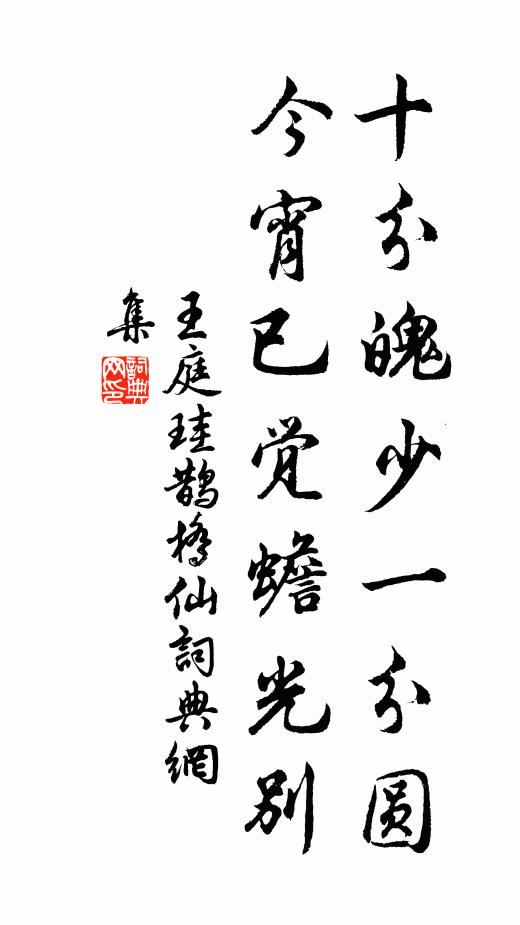 十分魄少一分圆
今宵已觉蟾光别
王庭珪鹊桥仙詞典網
集
詞典网印